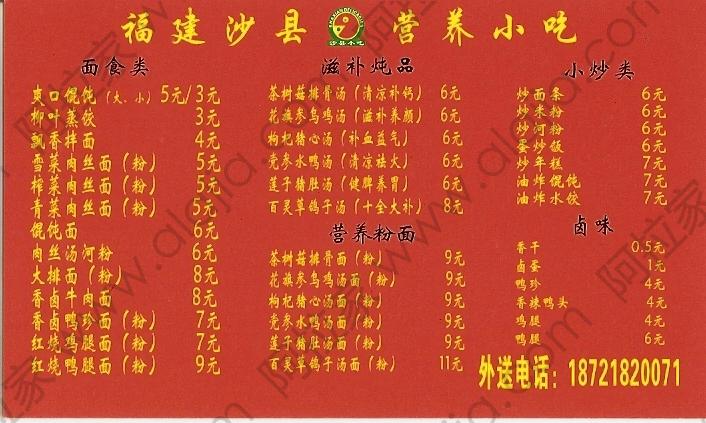 福建沙县 沙县小吃 营养小吃
面食类
爽口馄饨（大、小） 5元/3元
柳叶蒸饺 3元
飘香拌面 4元
雪菜肉丝面（粉） 5元
榨菜肉丝面（粉） 5元
青菜肉丝面（粉） 5元
馄饨面 6元
肉丝汤河粉 6元
大排面（粉） 8元
香卤牛肉面 8元
香卤鸭珍面（粉） 7元
红烧鸡腿面（粉） 7元
红烧鸭腿面（粉） 9元
滋补炖品
茶树菇排骨汤（清凉补钙） 6元
花旗参乌鸡汤（滋补养颜） 6元
枸杞猪心汤（补血益气） 6元
党参水鸭汤（清凉祛火） 6元
莲子猪肚汤（健脾养胃） 6元
百灵草鸽子汤（十全大补） 8元
营养粉面
茶树菇排骨面（粉） 9元
花旗参乌鸡汤面（粉） 9元
枸杞猪心汤面（粉） 9元
党参水鸭汤面（粉） 9元
莲子猪肚汤面（粉） 9元
百灵草鸽子汤面（粉） 11元
小炒类
炒面条 6元
炒米粉 6元
炒河粉 6元
蛋炒饭 6元
炒年糕 7元
油炸馄饨 7元
油炸水饺 7元
卤味
香干 0.5元
卤蛋 1元
鸭珍 4元
香辣鸭头 4元
鸡腿 4元
鸭腿 6元
外送电话：18721820071